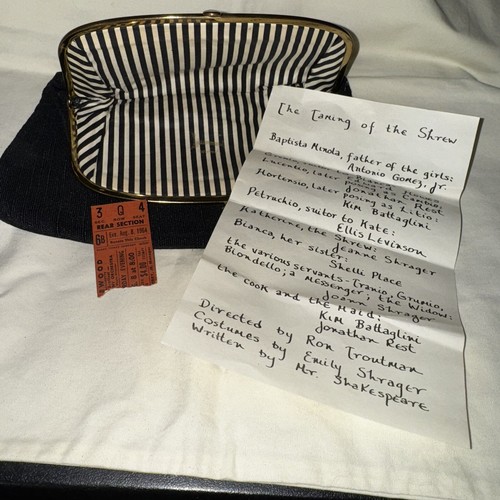 The Taming of the Shrew
Baptista Minola, father of the girls:
Antonio Gomez, Jr.
Hortensio, later posing as Litio:
Jonathan Rest
Kim Battaglini
Petruchio, suitor to Kate:
Ellis Levinson
Katherine, the Shrew:
Jeanne Shrager
Bianca, her sister:
Shelli Place
the various servants-Tranio, Grumio,
Blondello; a Messenger; the Widow:
Joann Shrager
the cook and the Maid:
Kim Battaglini
Jonathan Rest
Directed by Ron Troutman
Costumes by Emily Shrager
Written by Mr. Shakespeare
3 Q 4
ROW
REAR SECTION
6B Sun. Aug. 8, 1954